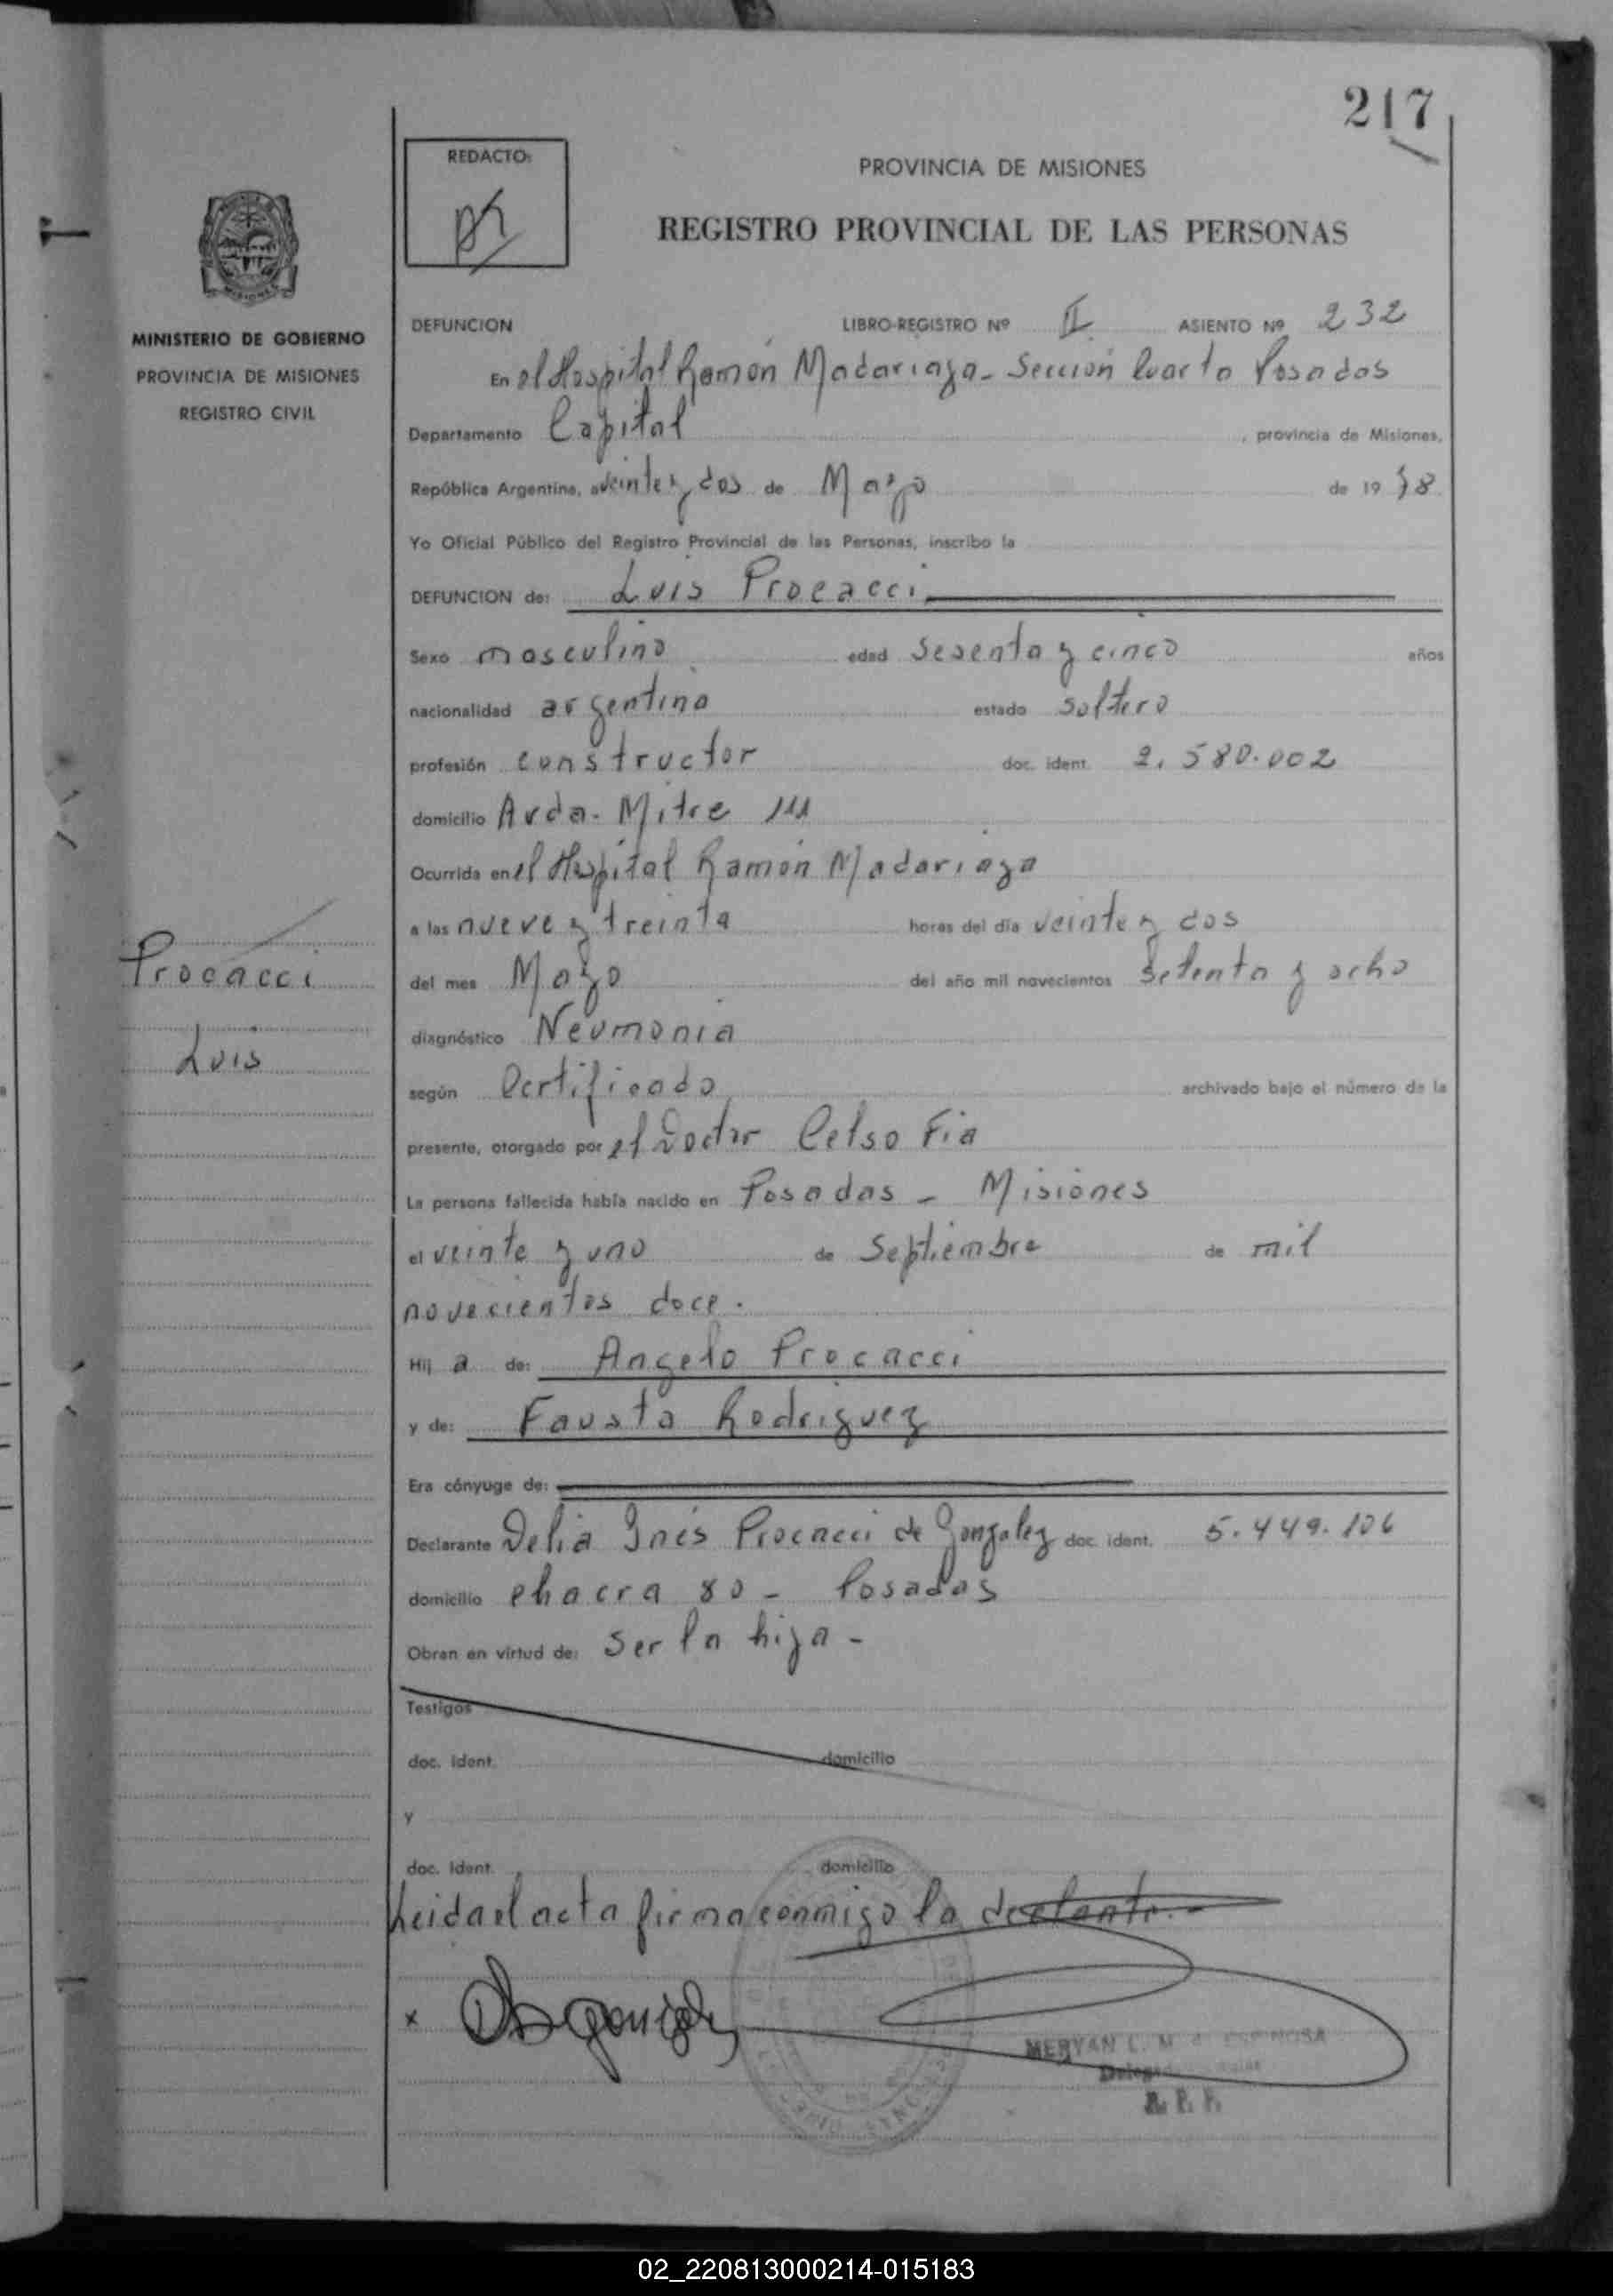 217
REDACTO:
PROVINCIA DE MISIONES
REGISTRO PROVINCIAL DE LAS PERSONAS
MISIONES
MINISTERIO DE GOBIERNO
PROVINCIA DE MISIONES
REGISTRO CIVIL
DEFUNCION LIBRO-REGISTRO Nº II ASIENTO Nº 232
En el Hospital Ramón Madariaga - Sección Cuarta Posadas
Departamento Capital, provincia de Misiones,
República Argentina, a veinte y dos de Mayo de 19 78
Yo Oficial Público del Registro Provincial de las Personas, inscribo la
DEFUNCION de: Luis Procacci
Sexo masculino edad sesenta y cinco años
nacionalidad argentina estado soltero
profesión constructor doc. ident. 2.580.002
domicilio Avda. Mitre 111
Ocurrida en el Hospital Ramón Madariaga
a las nueve y treinta horas del día veinte y dos
del mes Mayo del año mil novecientos setenta y ocho
diagnóstico Neumonia
según Certificado archivado bajo el número de la
presente, otorgado por el Doctor Celso Fia
La persona fallecida había nacido en Posadas - Misiones
el veinte y uno de Septiembre de mil
novecientos doce.
Hij a de: Angelo Procacci
y de: Fausta Rodriguez
Era cónyuge de:
Declarante Delia Inés Procacci de Gonzalez doc. ident. 5.449.106
domicilio chacra 80 - Posadas
Obran en virtud de: ser la hija -
Testigos
doc. ident. domicilio
y
doc. ident. domicilio
Leida el acta firma conmigo la
x
MERYAN L. M. ESPINOSA
R. P. P.
Procacci
Luis
02_220813000214-015183